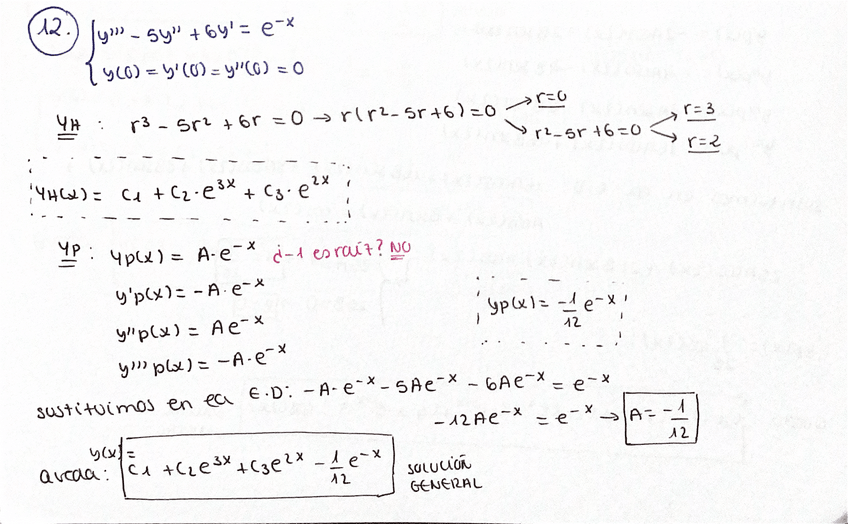 12. { y''' - 5y'' + 6y' = e^{-x}
y(0) = y'(0) = y''(0) = 0
YH : r³ - 5r² + 6r = 0 → r(r² - 5r + 6) = 0 → r = 0
→ r² - 5r + 6 = 0 → r = 3
→ r = 2
YH(x) = C1 + C2 · e^{3x} + C3 · e^{2x}
YP : Yp(x) = A · e^{-x} ¿-1 es raíz? NO
y'p(x) = -A · e^{-x}
yp(x) = -1/12 e^{-x}
y''p(x) = Ae^{-x}
y'''p(x) = -A · e^{-x}
sustituimos en ea E.D: -A · e^{-x} - 5Ae^{-x} - 6Ae^{-x} = e^{-x}
-12Ae^{-x} = e^{-x} → A = -1/12
y(x) =
C1 + C2e^{3x} + C3e^{2x} - 1/12 e^{-x} SOLUCIÓN
GENERAL